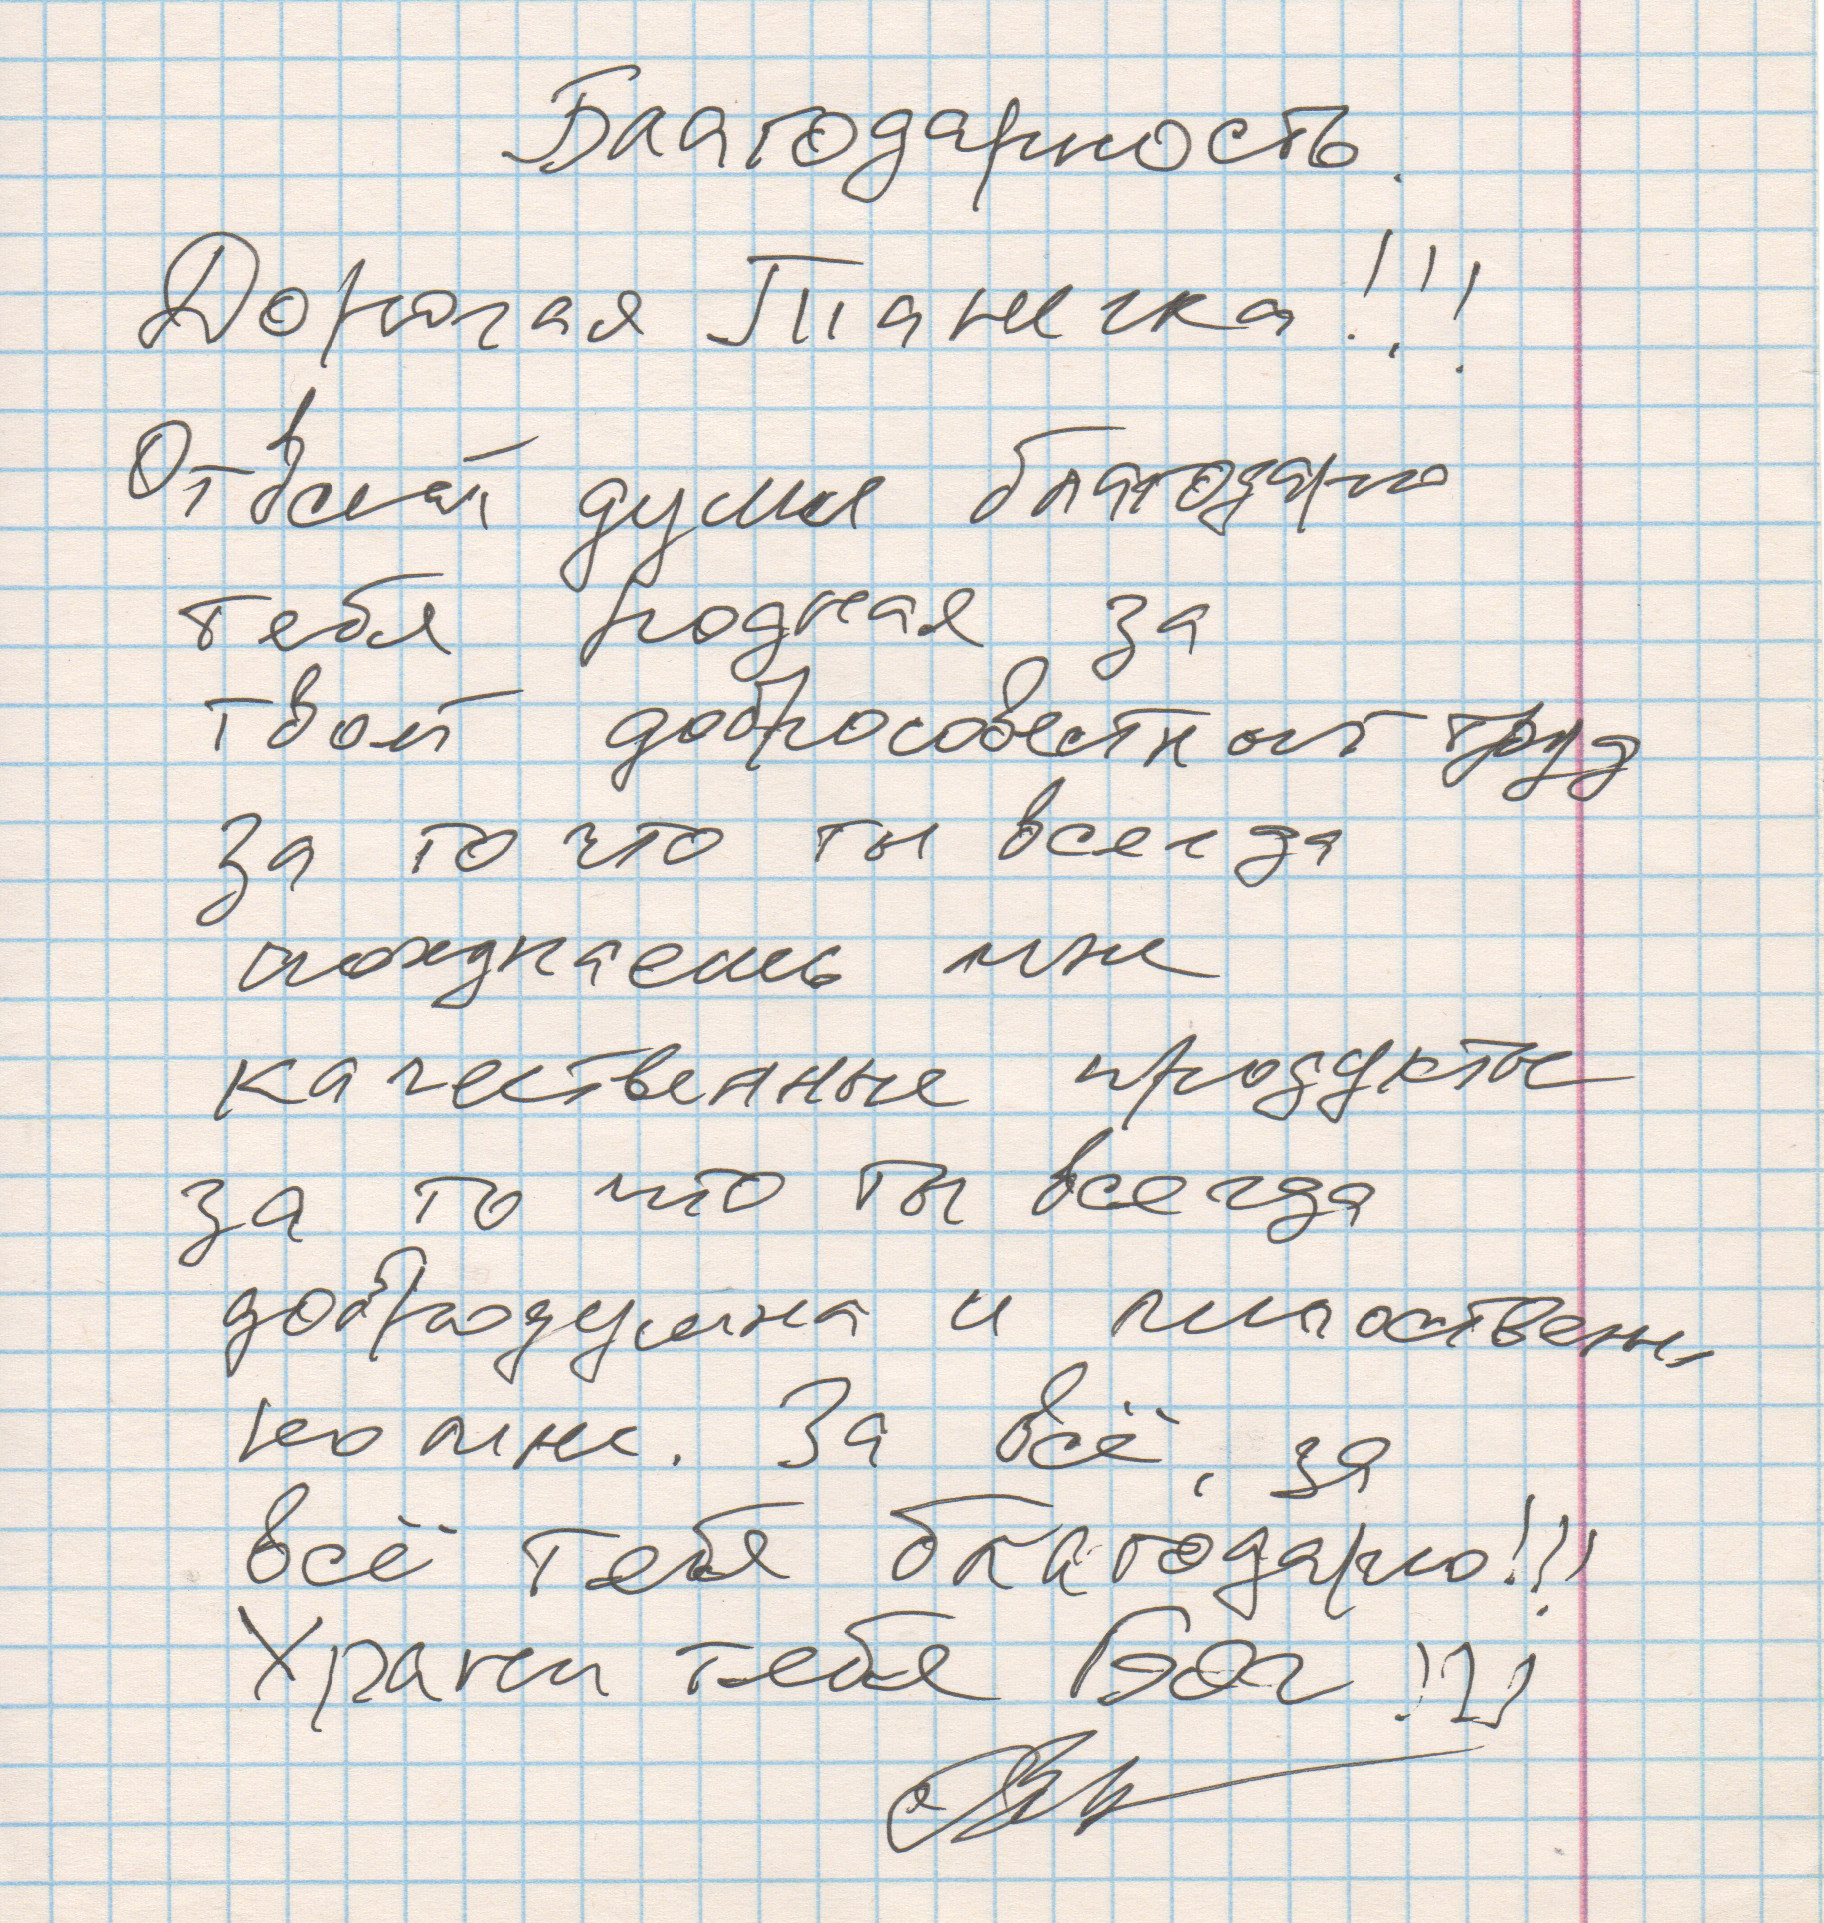 Благодарность.
Дорогая Танечка!!!
От всей души благодарю
тебя родная за
твой добросовестный труд
за то что ты всегда
мне
качественные продукты
за то что ты всегда
добродушна и
ко мне. За всё, за
всё тебя благодарю!!!
Храни тебя Бог!!!